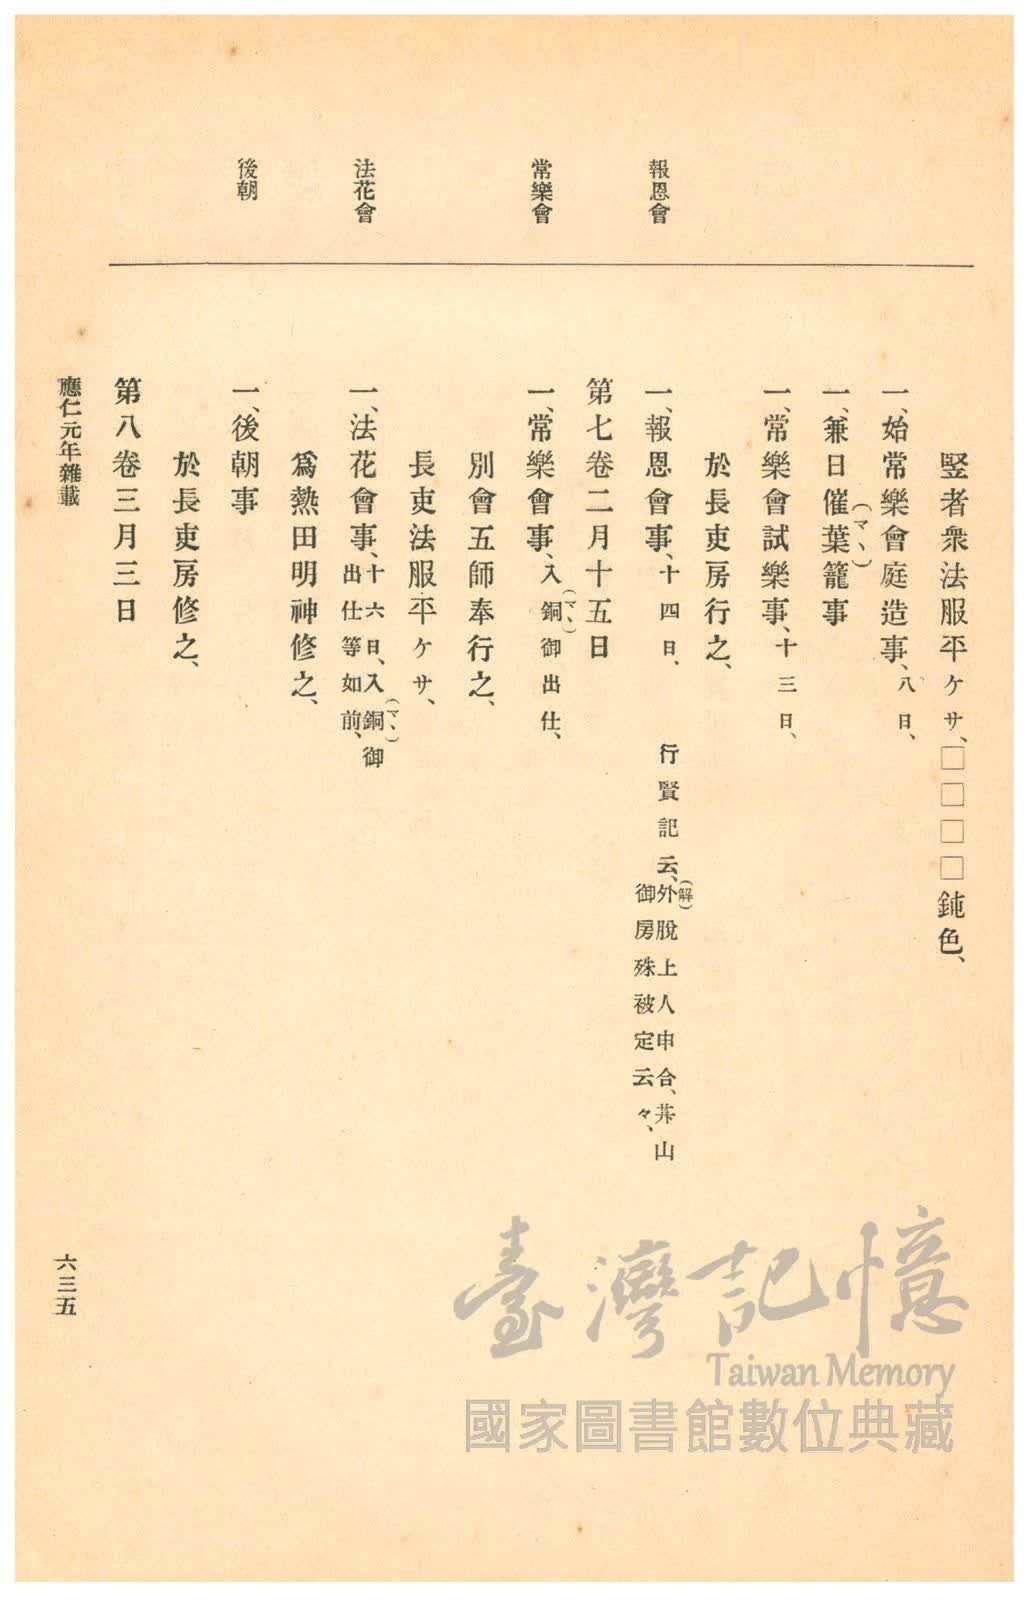 報恩會
常樂會
法花會
後朝
竪者衆法服平ケサ、□□□□鈍色、
一、始常樂會庭造事、八日、
一、兼日催葉籠事
(マヽ)
一、常樂會試樂事、十三日、
於長吏房行之、
一、報恩會事、十四日、 行賢記云、外脫上人申合、并山
(解)
御房殊被定云々、
第七卷二月十五日
一、常樂會事、入銅御出仕、
(マヽ)
別會五師奉行之、
長吏法服平ケサ、
一、法花會事、十六日、入銅御
(マヽ)
出仕等如前、
爲熱田明神修之、
一、後朝事
於長吏房修之、
第八卷三月三日
應仁元年雜載
六三五
臺灣記憶
Taiwan Memory
國家圖書館數位典藏